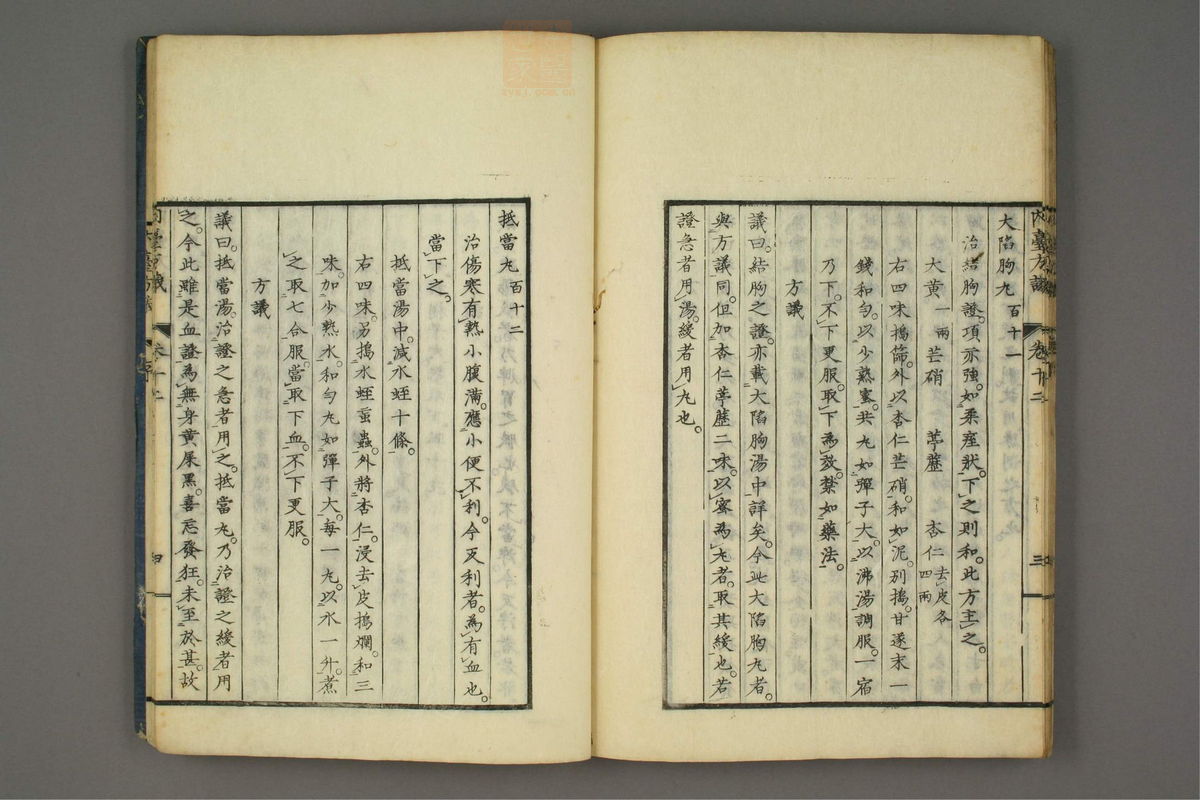 大陷胸丸百十一
治結胸證。項亦強。如柔痓狀。下之則和。此方主之。
大黃一兩 芒硝 葶藶 杏仁去皮各四兩
右四味搗篩。外以杏仁芒硝。和如泥。別搗。甘遂末一
錢和勻。以少熟蜜。共丸如彈子大。以沸湯調服。一宿
乃下。不下更服。取下為效。禁如藥法。
方議
議曰。結胸之證。亦載大陷胸湯中詳矣。今此大陷胸丸者。
與方議同。但加杏仁葶藶二味。以蜜為丸者。取其緩也。若
證急者用湯。緩者用丸也。
內臺方議 卷十二 三
抵當丸百十二
治傷寒有熱小腹滿。應小便不利。今反利者。為有血也。
當下之。
抵當湯中。減水蛭十條。
右四味。另搗水蛭䖟蟲。外將杏仁。浸去皮搗爛。和三
味。加少熟水。和勻丸如彈子大。每一丸。以水一升。煮
之取七合服。當取下血。不下更服。
方議
議曰。抵當湯。治證之急者用之。抵當丸。乃治證之緩者用
之。今此雖是血證。為無身黃屎黑。喜忘發狂。未至於甚。故
卷十二 四